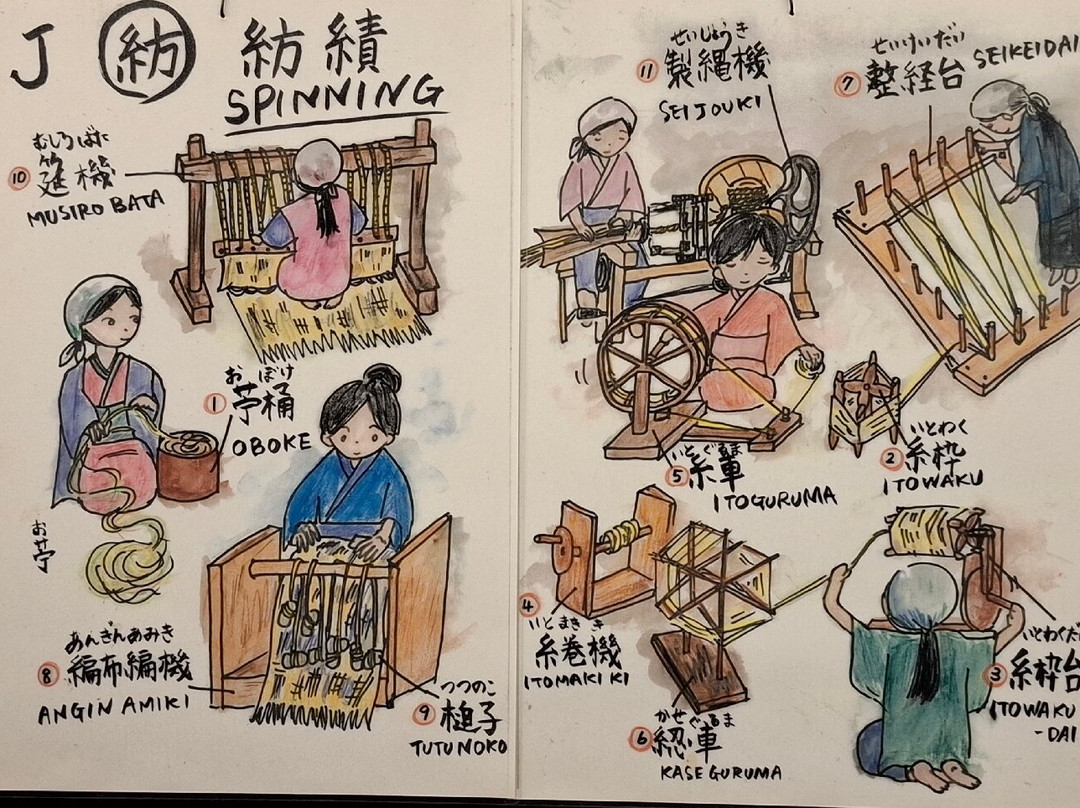 J 紡 紡績
SPINNING
むしろばた
⑩ 筵機
MUSIRO BATA
おぼけ
① 苧桶
OBOKE
お苧
あんぎんあみき
⑧ 編布編機
ANGIN AMIKI
つつのこ
⑨ 槌子
TUTUNOKO
せいじょうき
⑪ 製縄機
SEIJOUKI
せいけいだい
⑦ 整経台 SEIKEIDAI
いとぐるま
⑤ 糸車
ITOGURUMA
いとわく
② 糸枠
ITOWAKU
④
いとまきき
糸巻機
ITOMAKI KI
かせぐるま
⑥ 綛車
KASE GURUMA
いとわくだ
③ 糸枠台
ITOWAKU
-DAI